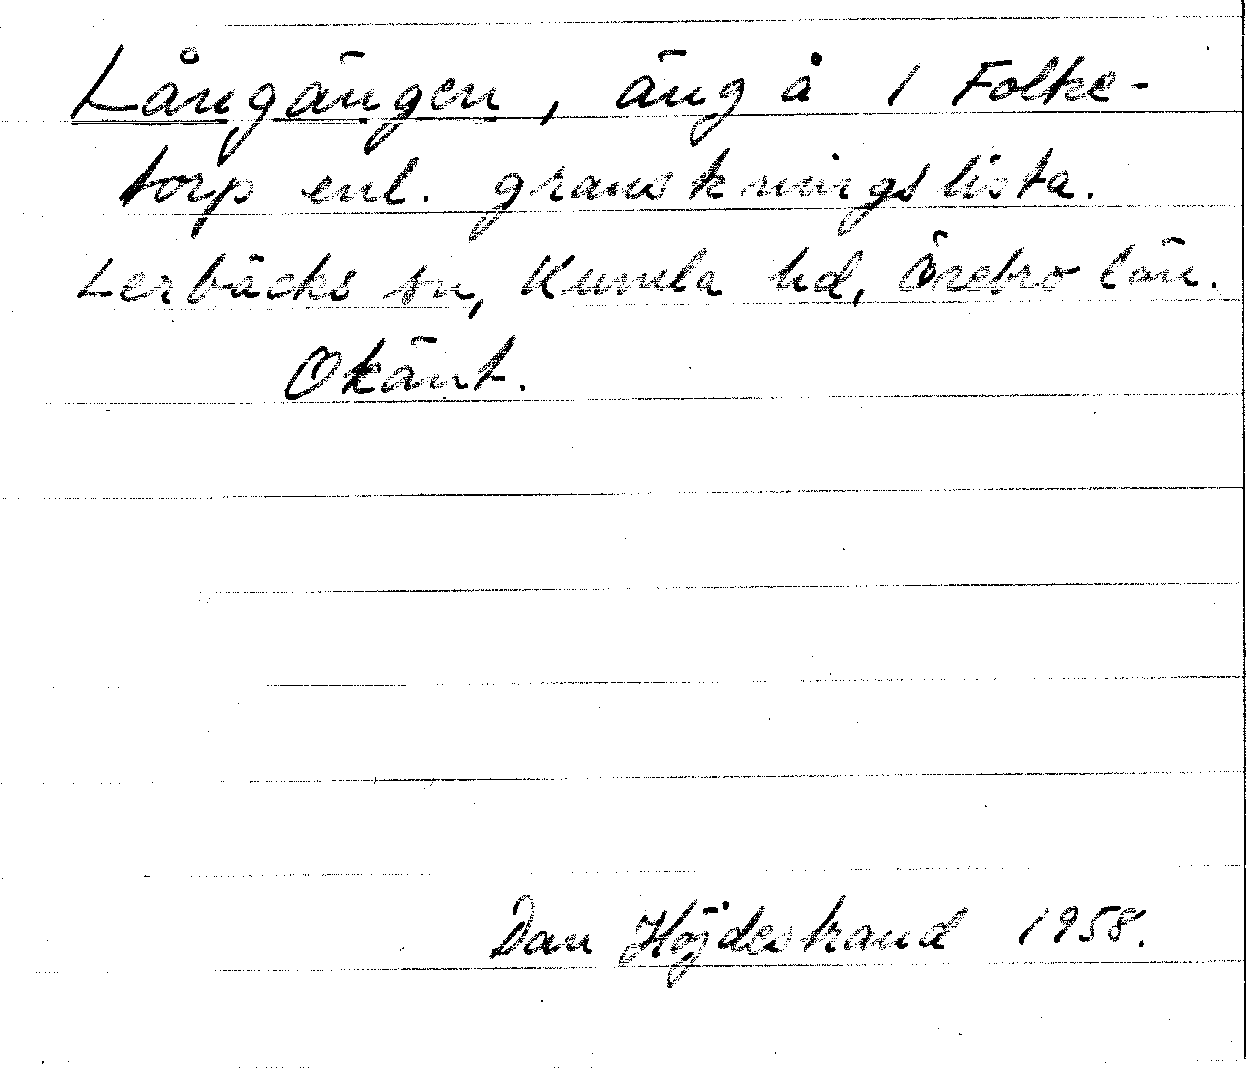 Långängen, äng å 1 Folke-
torp enl. granskningslista.
Lerbäcks sn, Kumla hd, Örebro län.
Okänt.
Dan Höjdestrand 1958.